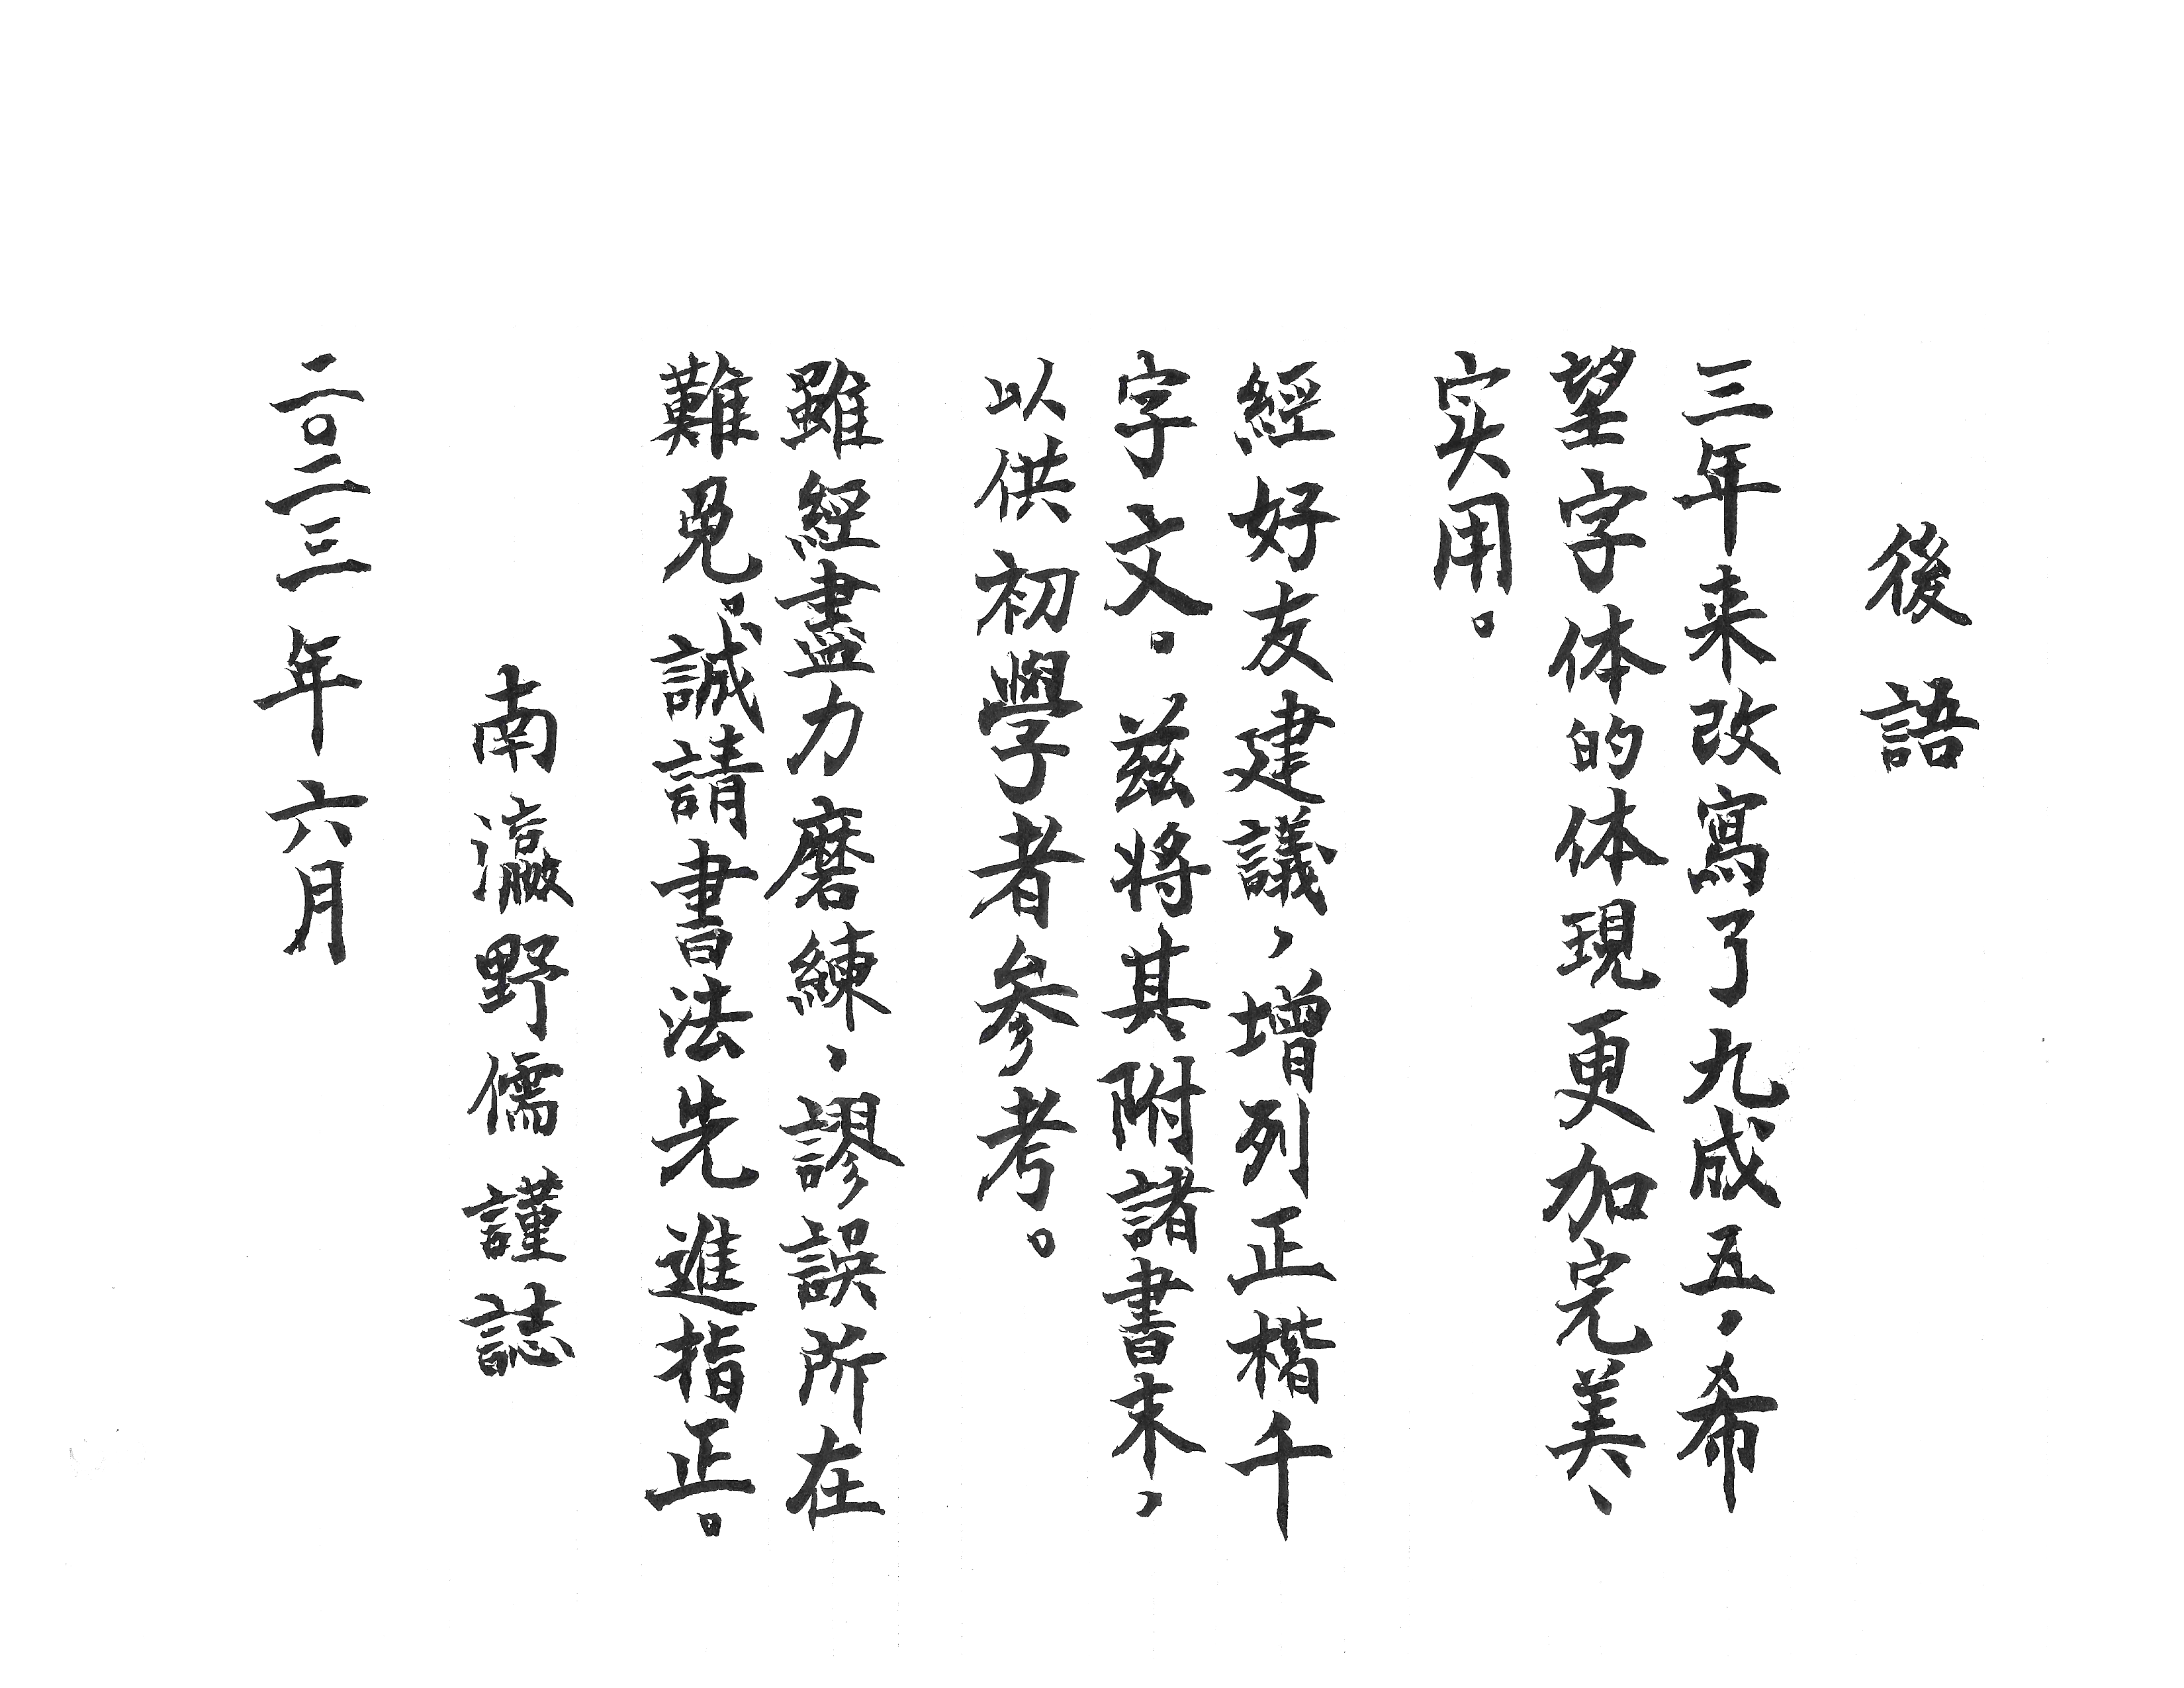 後語
三年来改寫了九成五，希
望字体的体現更加完美、
实用。
經好友建議，增列正楷千
字文。茲將其附諸書末，
以供初學者参考。
雖經盡力磨練，謬誤所在
難免。誠請書法先進指正。
南瀛野儒謹誌
二〇二三年六月